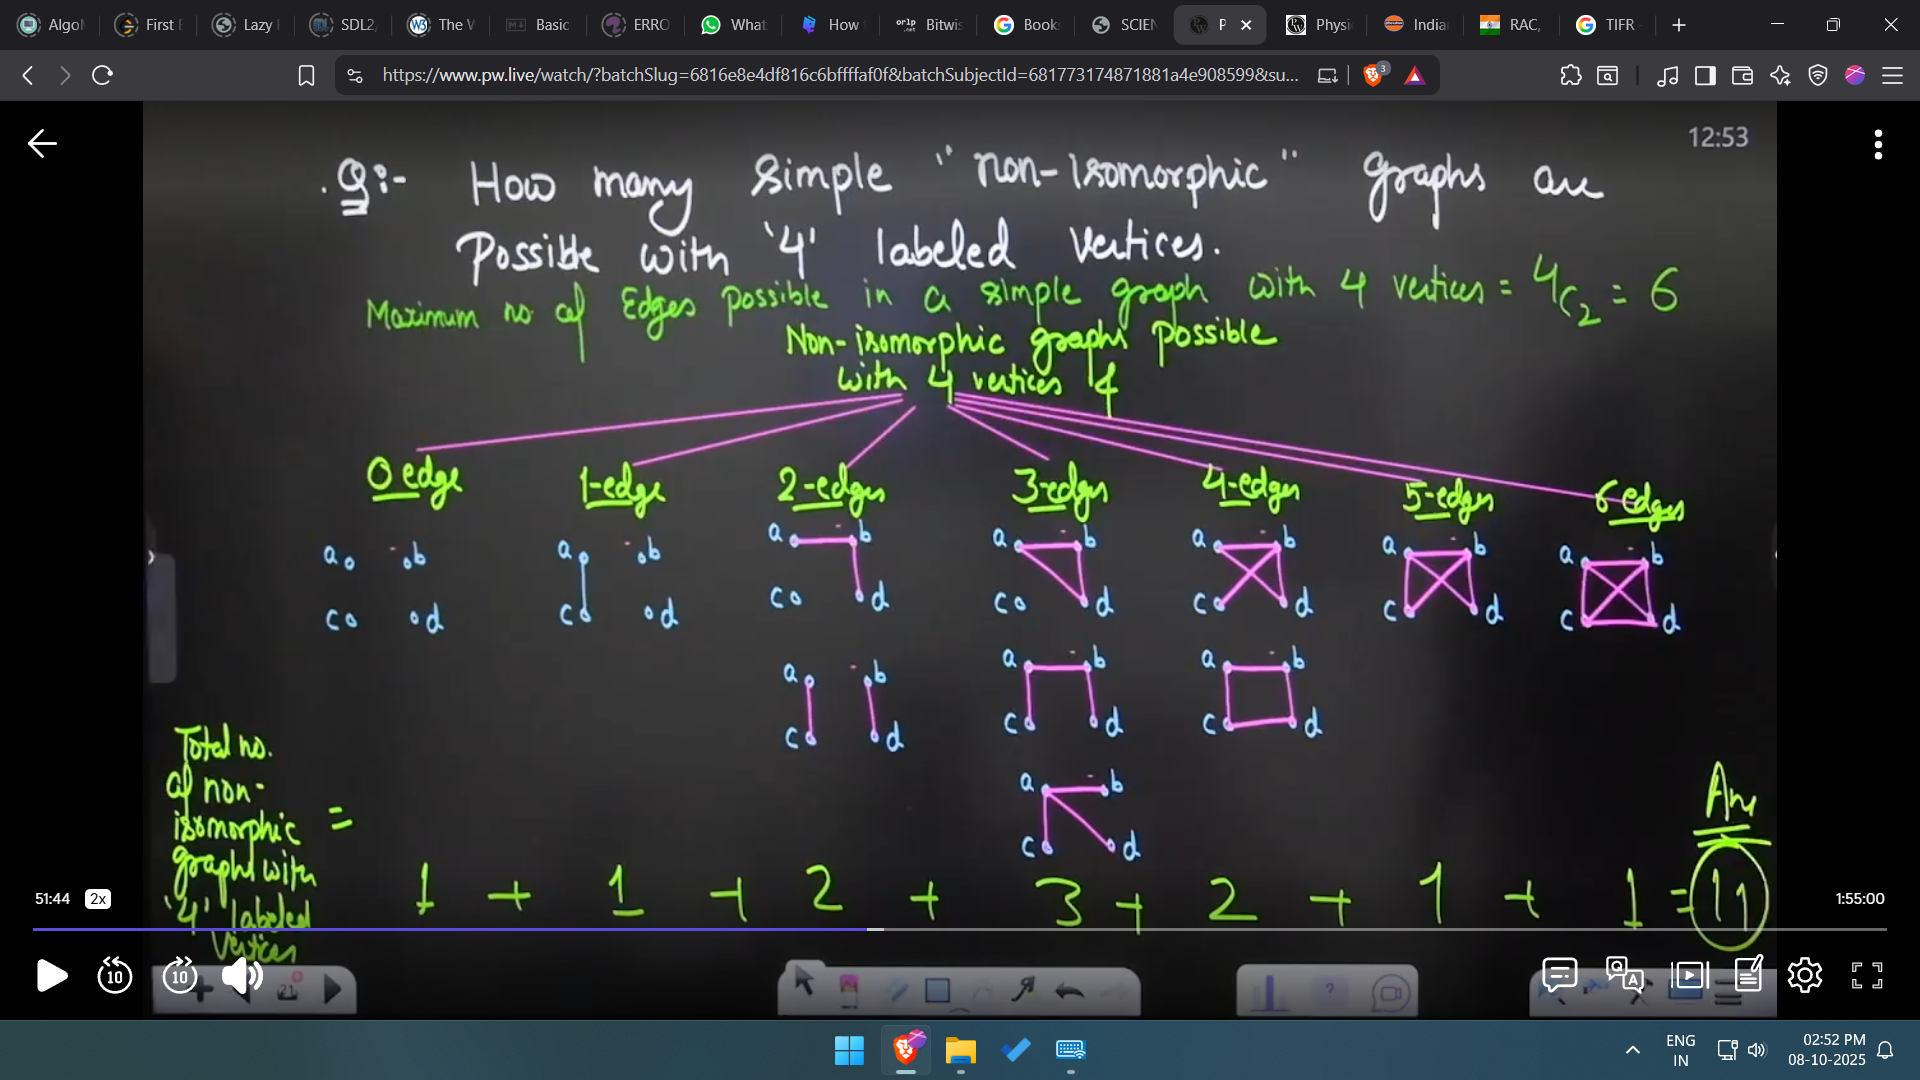 Algo
First E
Lazy
SDL2
The W
Basic
ERRO
What
How
Bitwis
Book
SCIEN
P
Physi
India
RAC,
TIFR
https://www.pw.live/watch/?batchSlug=6816e8e4df816c6bffffaf0f&batchSubjectId=681773174871881a4e908599&su...
3
12:53
Q:- How many simple "non-isomorphic" graphs are
Possible with '4' labeled vertices.
Maximum no of Edges possible in a simple graph with 4 vertices = 4C2 = 6
Non-isomorphic graphs possible
with 4 vertices
0 edge 1-edge 2-edges 3-edges 4-edges 5-edges 6 edges
a b a b a b a b a b a b a b
c d c d c d c d c d c d c d
a b a b a b
c d c d c d
a b
c d
Total no.
of non-
isomorphic =
graphs with
'4' labeled
vertices
1 + 1 + 2 + 3 + 2 + 1 + 1 = 11
Ans
51:44 2x
1:55:00
10 10
21
ENG
IN
02:52 PM
08-10-2025